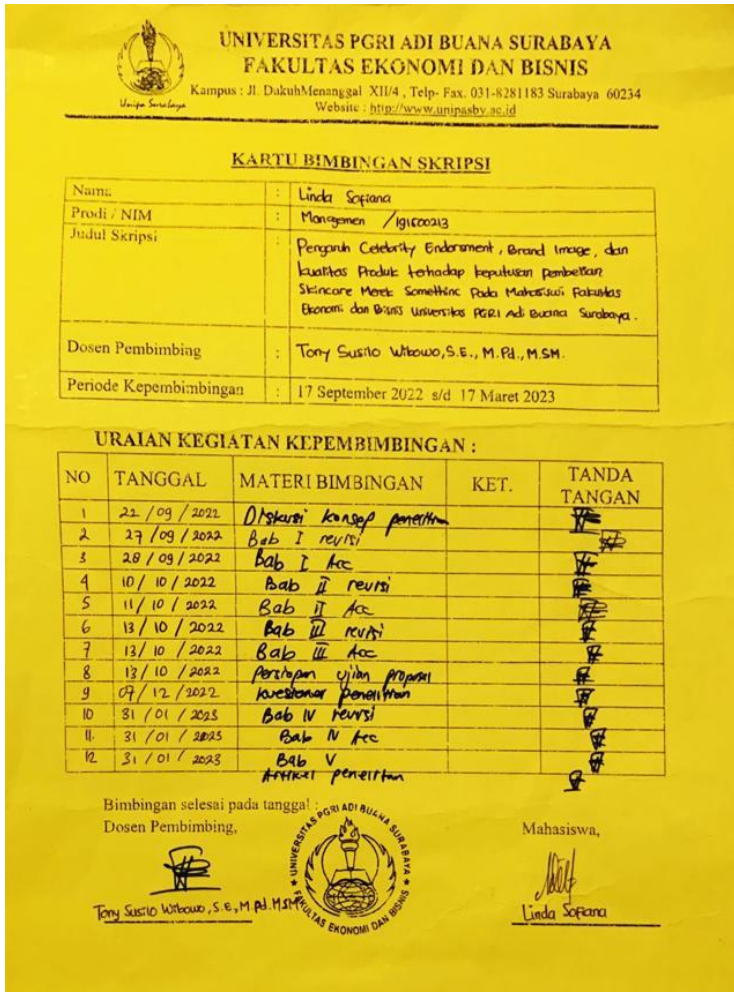 UNIVERSITAS PGRI ADI BUANA SURABAYA
FAKULTAS EKONOMI DAN BISNIS
Kampus : Jl. DukuhMenanggal XII/4 , Telp- Fax. 031-8281183 Surabaya 60234
Website : http://www.unipasby.ac.id
Unipa Surabaya
KARTU BIMBINGAN SKRIPSI
Nama : Linda Sofiana
Prodi / NIM : Manajemen /191500213
Judul Skripsi : Pengaruh Celebrity Endorsment, Brand Image, dan
kualitas Produk terhadap keputusan pembelian
Skincare Merek Somethinc Pada Mahasiswi Fakultas
Ekonomi dan Bisnis Universitas PGRI Adi Buana Surabaya.
Dosen Pembimbing : Tony Susilo Wibowo, S.E., M.Pd., M.SM.
Periode Kepembimbingan : 17 September 2022 s/d 17 Maret 2023
URAIAN KEGIATAN KEPEMBIMBINGAN :
NO TANGGAL MATERI BIMBINGAN KET. TANDA TANGAN
1 22 / 09 / 2022 Diskusi konsep penelitian
2 27 / 09 / 2022 Bab I revisi
3 28 / 09 / 2022 Bab I Acc
4 10 / 10 / 2022 Bab II revisi
5 11 / 10 / 2022 Bab II Acc
6 13 / 10 / 2022 Bab III revisi
7 13 / 10 / 2022 Bab III Acc
8 13 / 10 / 2022 Persiapan ujian proposal
9 07 / 12 / 2022 kuesioner penelitian
10 31 / 01 / 2023 Bab IV revisi
11. 31 / 01 / 2023 Bab IV Acc
12 31 / 01 / 2023 Bab V
Artikel penelitian
Bimbingan selesai pada tanggal :
Dosen Pembimbing, Mahasiswa,
UNIVERSITAS PGRI ADI BUANA SURABAYA
FAKULTAS EKONOMI DAN BISNIS
Tony Susilo Wibowo, S.E, M.Pd. M.SM Linda Sofiana